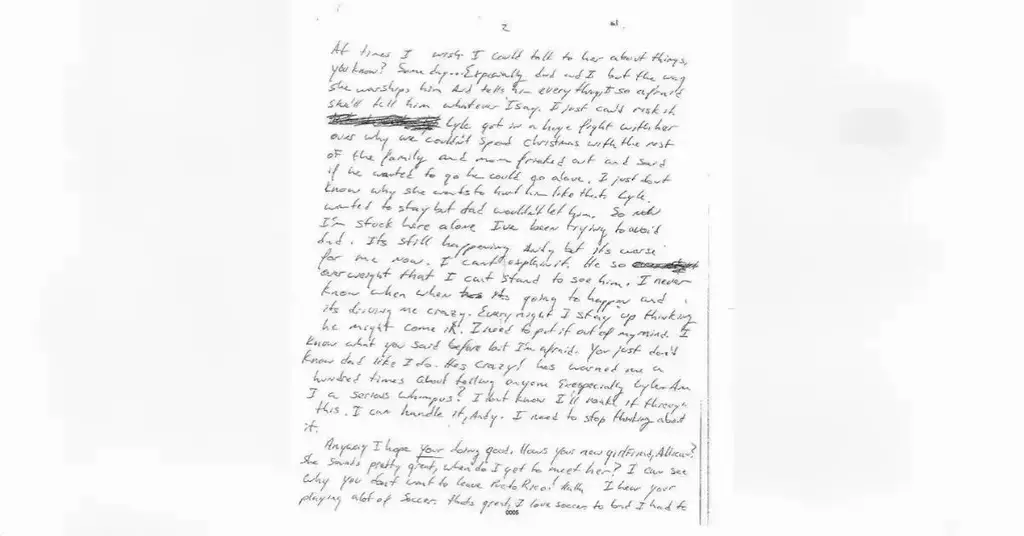 2
At times I wish I could talk to her about things,
you know? Some day... Expecially dad and I but the way
she worships him and tells him everything, I so afraid
she'll tell him whatever I say. I just can't risk it.
Lyle got in a huge fight with her
over why we couldn't spend Christmas with the rest
of the family and mom freaked out and said
if he wanted to go he could go alone. I just don't
know why she wants to hurt him like that. Lyle
wanted to stay but dad wouldn't let him. So now
I'm stuck here alone I've been trying to avoid
dad. Its still happening Andy but its worse
for me now. I can't explain it. He so
overweight that I can't stand to see him. I never
know when when its going to happen and
its driving me crazy. Every night I stay up thinking
he might come in. I need to put it out of my mind. I
know what you said before but I'm afraid. You just don't
know dad like I do. Hes crazy! hes warned me a
hundred times about telling anyone Exespecially Lyle. Am
I a serious whimpus? I don't know I'll make it through
this. I can handle it, Andy. I need to stop thinking about
it.
Anyway I hope your doing good. Hows your new girlfriend,
She sounds pretty great, when do I get to meet her? I can see
why you don't want to leave Puerto Rico! I hear your
playing alot of soccer. thats great, I love soccer to but I had to
0005